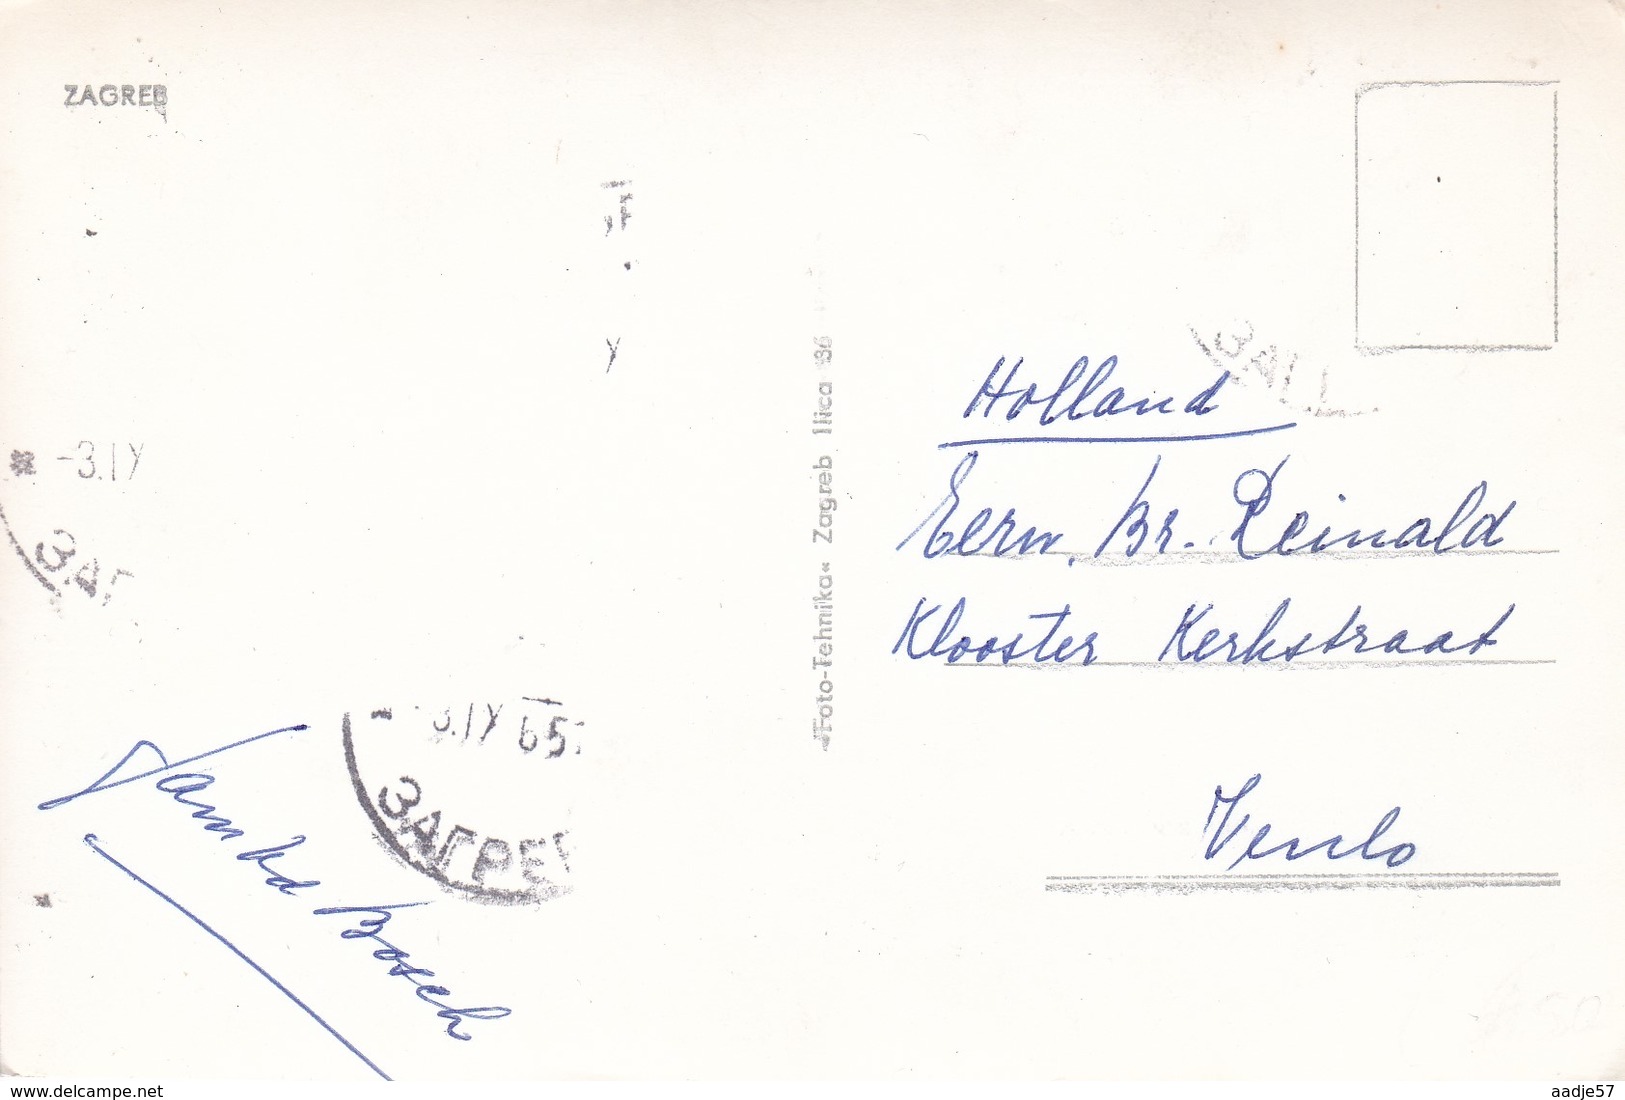 ZAGREB
-3.IX
ЗАГ
-3.IX 65
ЗАГРЕ
Bosch
»Foto-Tehnika« Zagreb Ilica 136
ЗАГ
Holland
Eerw. Br. Reinald
Klooster Kerkstraat
Venlo
delcampe.net
aadje57